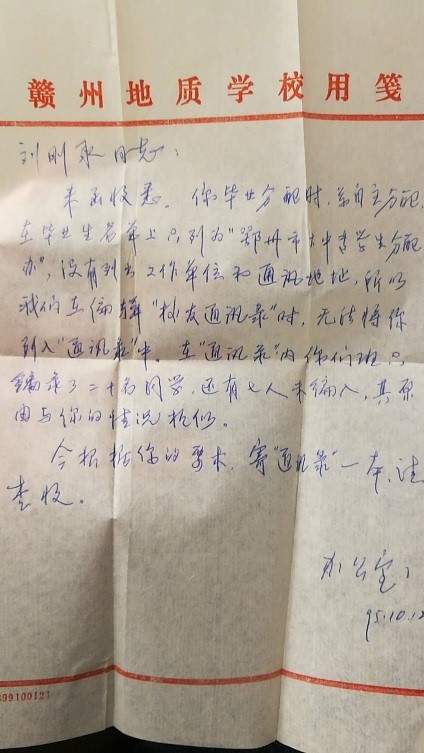 赣州地质学校用笺
刘刚永同志：
来函收悉。你毕业分配时，系自主分配，
在毕业生名单上只列为“鄂州市大中专学生分配
办”，没有列出工作单位和通讯地址，所以
我们在编辑“校友通讯录”时，无法将你
列入“通讯录”中。在“通讯录”内你们班只
编录了二十名同学，还有七人未编入，其原
因与你的情况相似。
今根据你的要求，寄“通讯录”一本，请
查收。
办公室
95.10.12
399100123